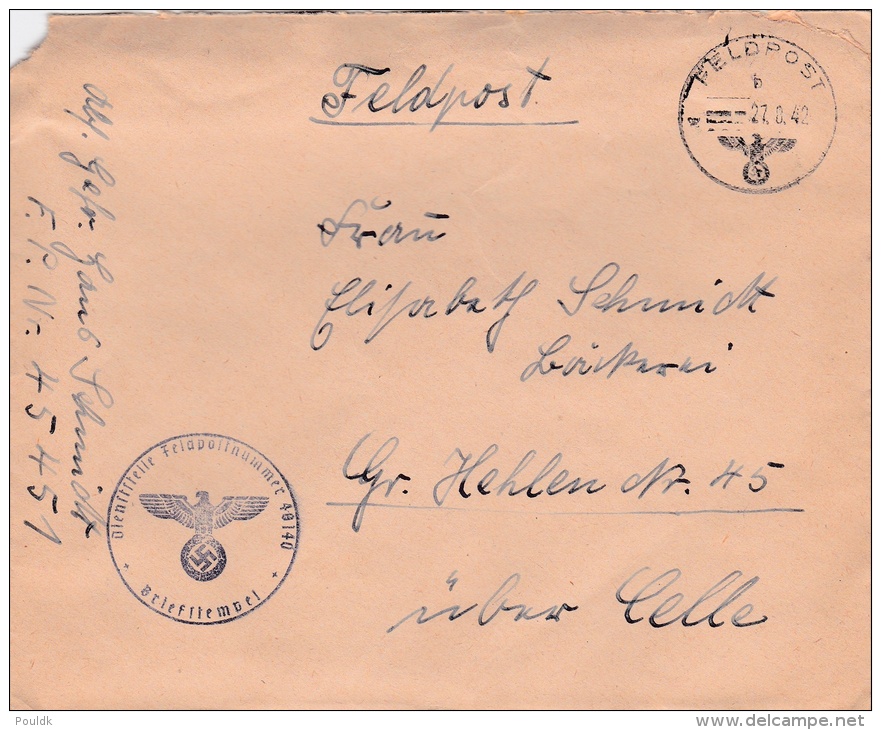 Feldpost
FELDPOST
b
27.8.42
a
Frau
Elisabeth Schmidt
Bäckerei
Gr. Hehlen Nr. 45
über Celle
Abs. Gefr. Hans Schmidt
F. P. Nr. 45451
Dienststelle Feldpostnummer 40140
Briefstempel
Pouldk
www.delcampe.net